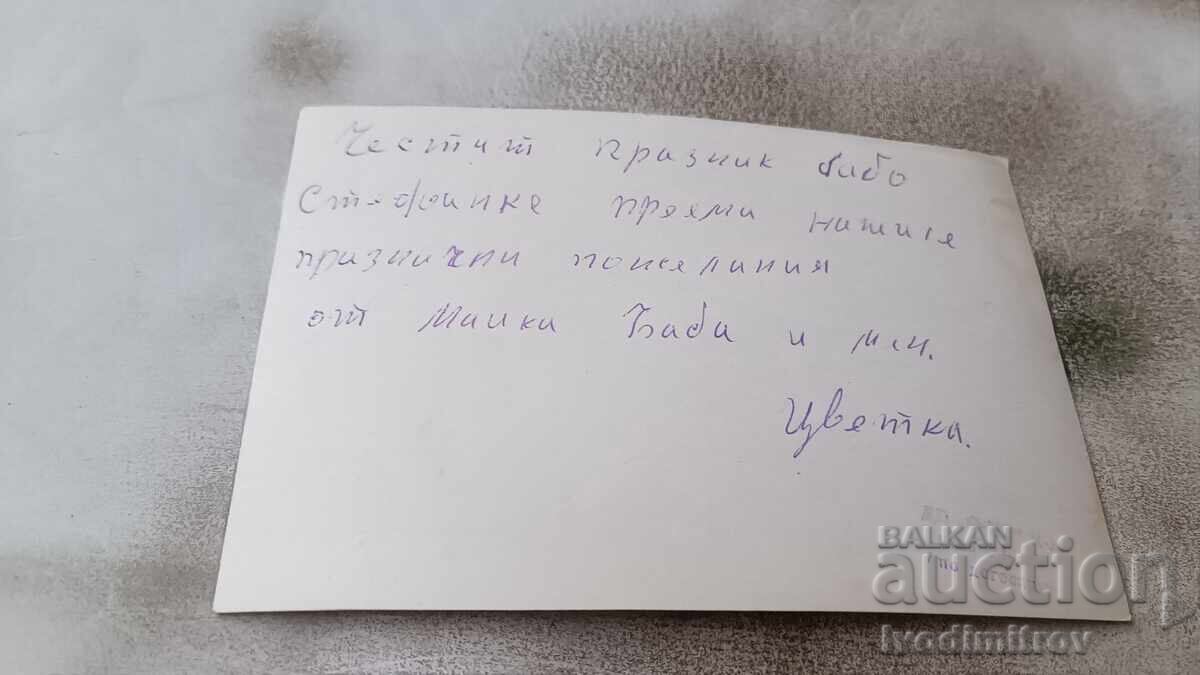 Честит празник бабо
Стефанке преями нашите
празнични пожелания
от Майка Баба и м-н.
Цветка.
BALKAN
auction
ivodimitrov